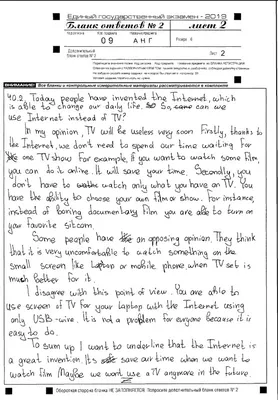 Единый государственный экзамен - 2019
Бланк ответов № 2
лист 2
09 АНГ
Лист 2
ВНИМАНИЕ! Все бланки и контрольные измерительные материалы рассматриваются в комплекте
40.2. Today people have invented the Internet, which
is able to change our daily life. So, some can we
use Internet instead of TV?
In my opinion, TV will be useless very soon. Firstly, thanks to
the Internet, we don't need to spend our time waiting for
one TV show. For example, if you want to watch some film,
you can do it online. It will save your time. Secondly, you
don't have to watch only what you have on TV. You
have the ability to choose your own film or show. For instance,
instead of boring documentary film you are able to turn on
your favorite sitcom.
Some people have an opposing opinion. They think
that it is very uncomfortable to watch something on the
small screen like Laptop or mobile phone when TV set is
much better for it.
I disagree with this point of view. You are able to
use screen of TV for your laptop with the Internet using
only USB-wire. It is not a problem for everyone because it is
easy to do.
To sum up I want to underline that the Internet is
a great invention. It's save our time when we want to
watch film. Maybe we wont use a TV anymore in the future.
Оборотная сторона бланка НЕ ЗАПОЛНЯЕТСЯ. Попросите дополнительный бланк ответов № 2